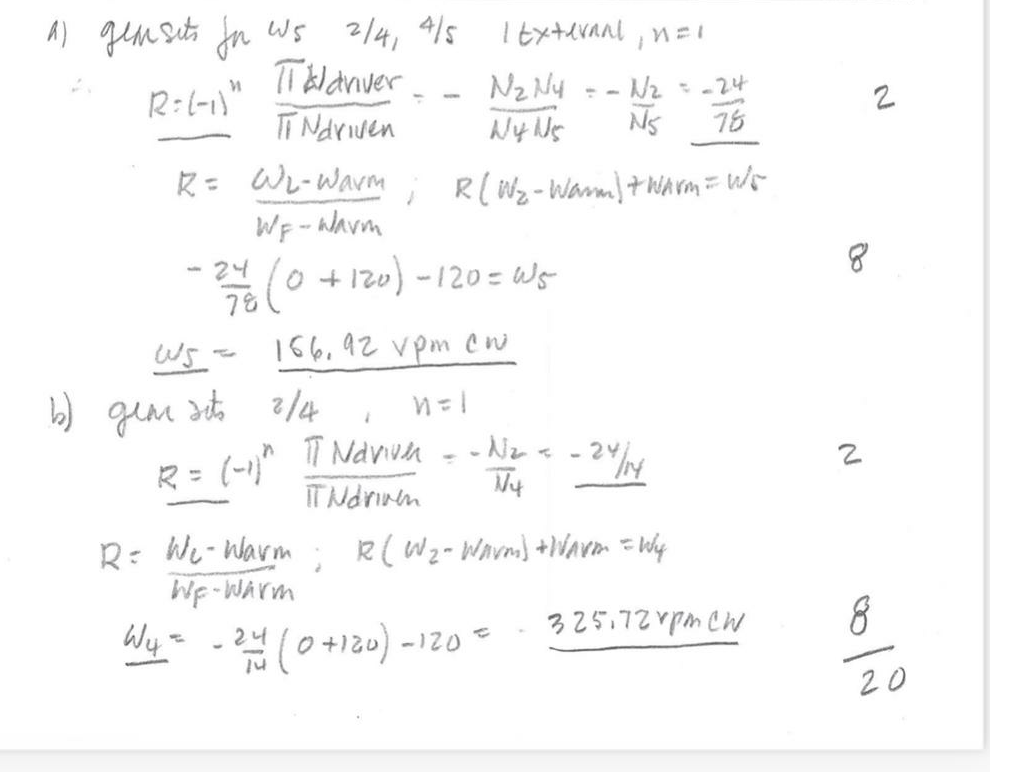 a) gear sets for W5 2/4, 4/5 1 External, n=1
∴ R=(-1)^n ΠNdriver/ΠNdriven = - N2N4/N4N5 = - N2/N5 = -24/78 2
R = WL-Warm/WF-Warm ; R(W2-Warm)+Warm=W5
-24/78 (0 +120) -120 = W5 8
W5 = 156.92 rpm cw
b) gear sets 2/4 , n=1
R = (-1)^n ΠNdriver/ΠNdriven = -N2/N4 = -24/14 2
R = WL-Warm/WF-Warm ; R(W2-Warm)+Warm=W4
W4 = -24/14 (0+120) -120 = 325.72 rpm CW 8
20